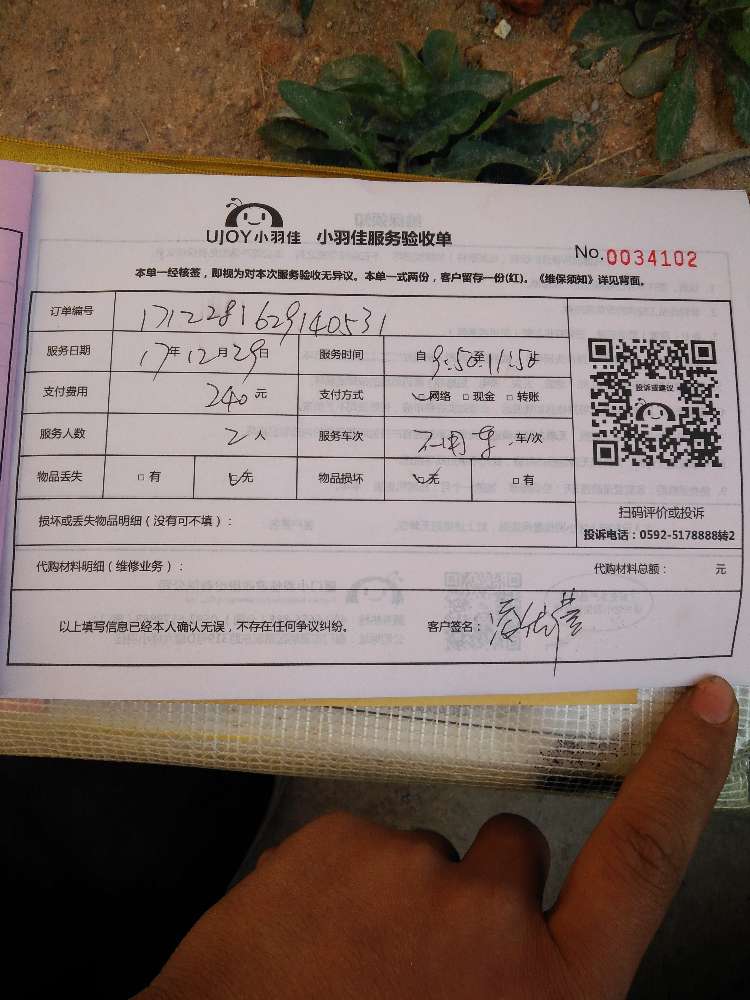 UJOY小羽佳 小羽佳服务验收单
No.0034102
本单一经核签，即视为对本次服务验收无异议。本单一式两份，客户留存一份(红)。《维保须知》详见背面。
订单编号 1712281629140531
服务日期 17年12月29日 服务时间 自9:50至11:50止
支付费用 240元 支付方式 网络 □现金 □转账
服务人数 2人 服务车次 不用车 车/次
物品丢失 □有 无 物品损坏 无 □有
损坏或丢失物品明细（没有可不填）：
代购材料明细（维修业务）： 代购材料总额： 元
以上填写信息已经本人确认无误，不存在任何争议纠纷。 客户签名：
投诉或建议
扫码评价或投诉
投诉电话：0592-5178888转2